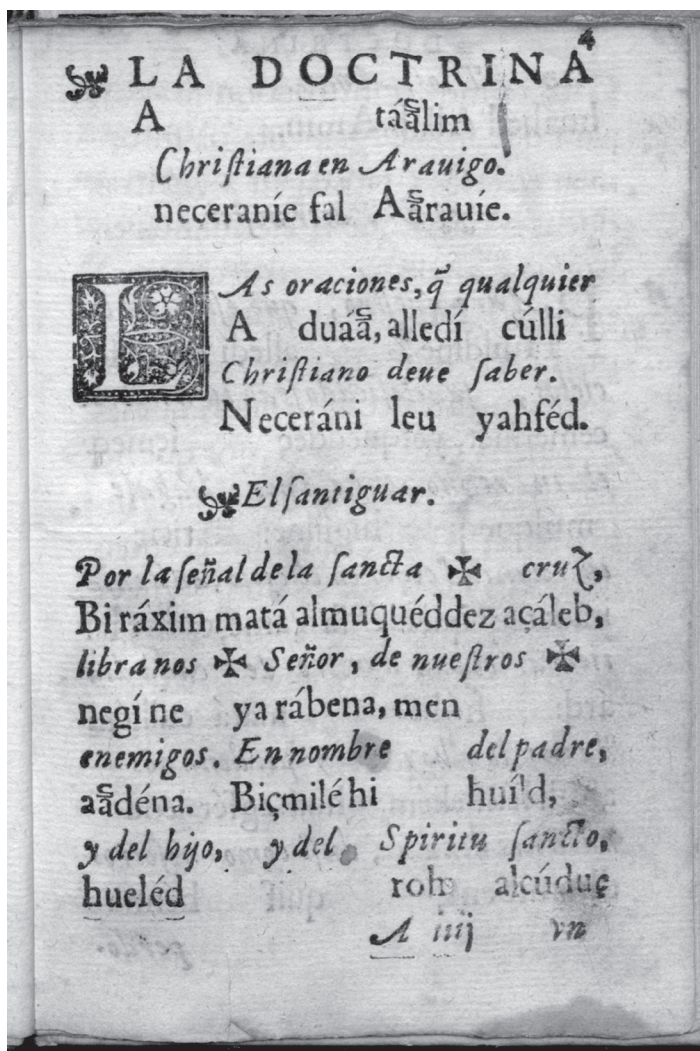 4
LA DOCTRINA
A táa̰lim
Chriſtiana en Arauigo.
neceraníe fal Aa̰rauie.
LAs oraciones, q̃ qualquier
A duáa̰, alledí cúlli
Chriſtiano deue ſaber.
Neceráni leu yahféd.
El ſantiguar.
Por la ſeñal de la ſancta ✠ cruz,
Bi ráxim matá almuquéddez açáleb,
libra nos ✠ Señor, de nueſtros ✠
negí ne ya rábena, men
enemigos. En nombre del padre,
aa̰déna. Biçmiléhi huíld,
y del hijo, y del Spiritu ſancto,
hueléd roh alcúduç
A iiij vn